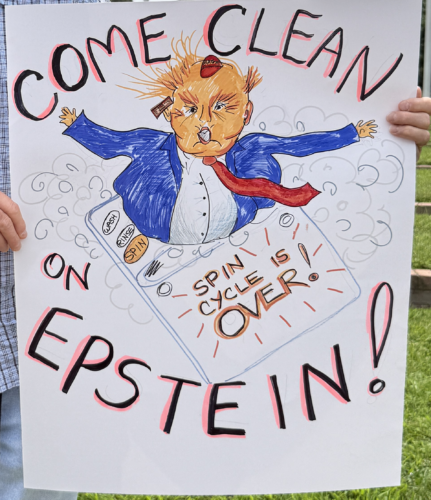 COME CLEAN
WASH
RINSE
SPIN
SPIN
CYCLE IS
OVER!
ON
EPSTEIN!